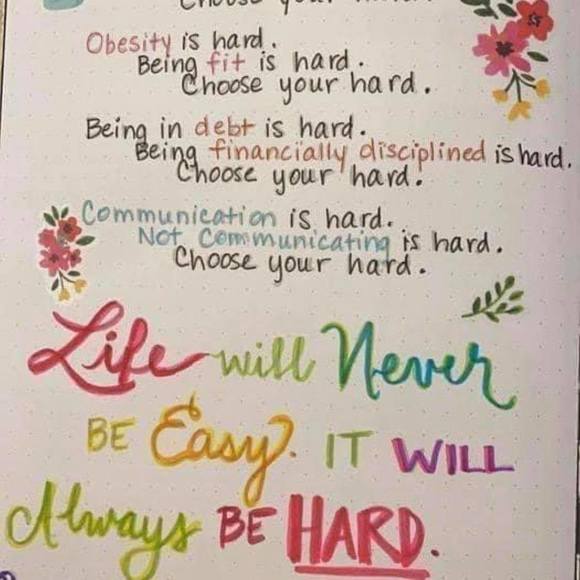 Choose your
Obesity is hard.
Being fit is hard.
Choose your hard.
Being in debt is hard.
Being financially disciplined is hard.
Choose your hard.
Communication is hard.
Not Communicating is hard.
Choose your hard.
Life will Never
BE Easy. IT WILL
Always BE HARD.